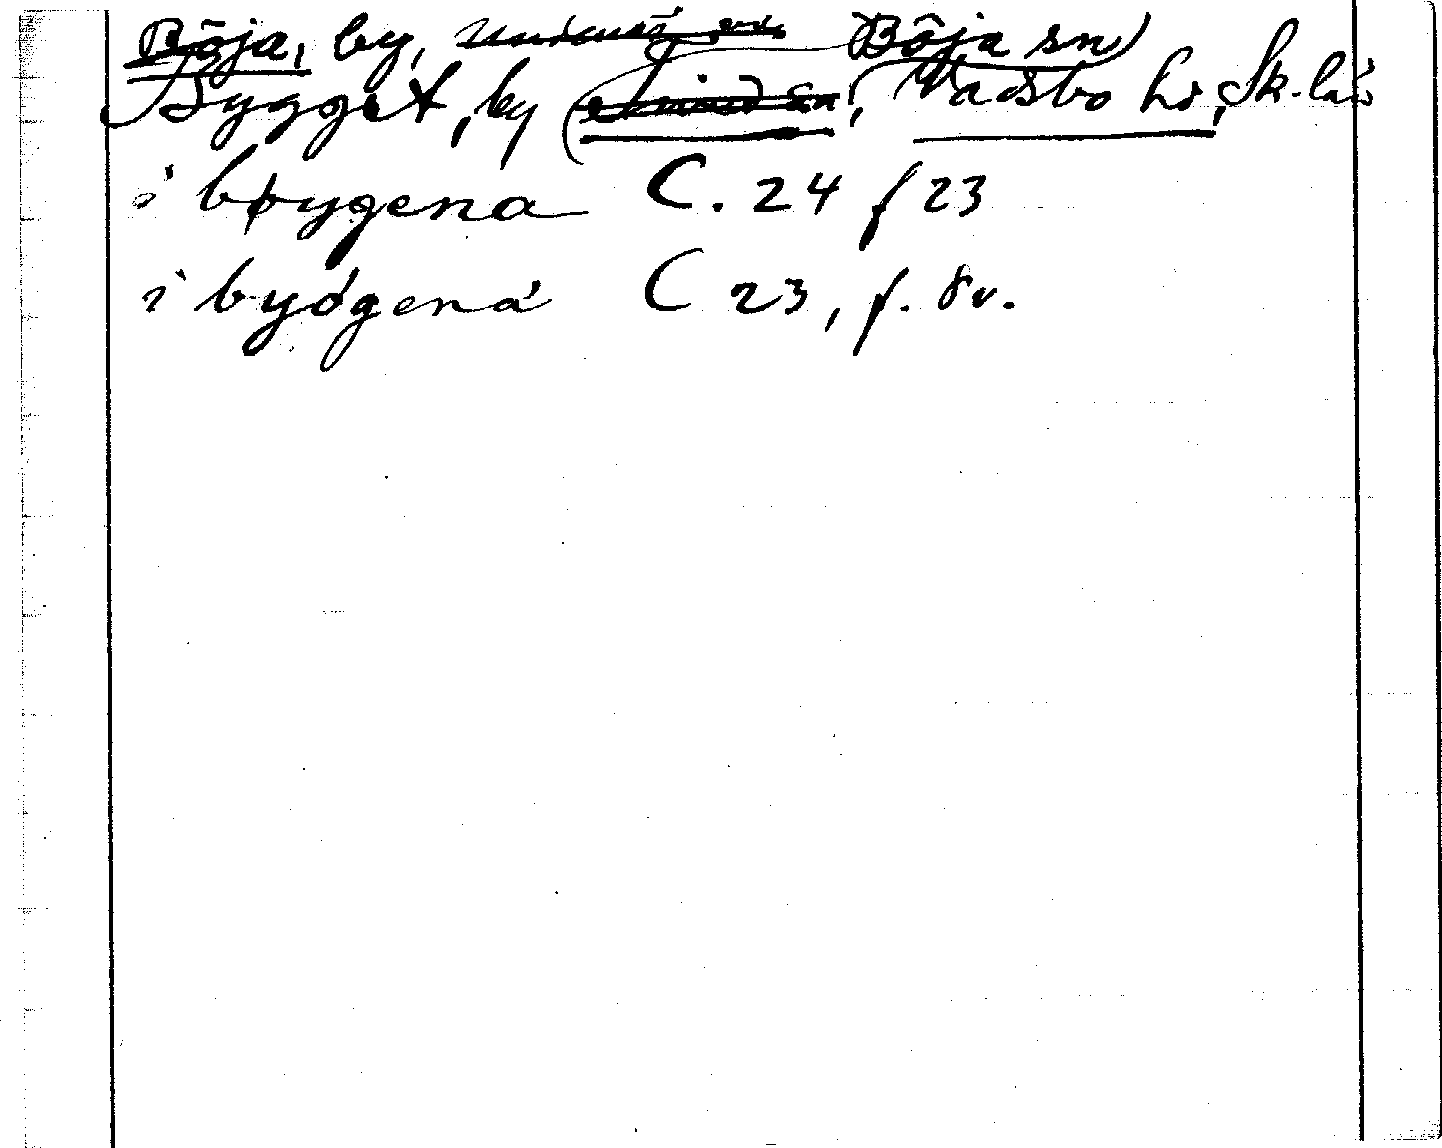 Böja, by, Böja sn)
Bygget, by (, Vadsbo hd, Sk. län
i bøygena C. 24 f 23
i byögená C 23, f. 8v.